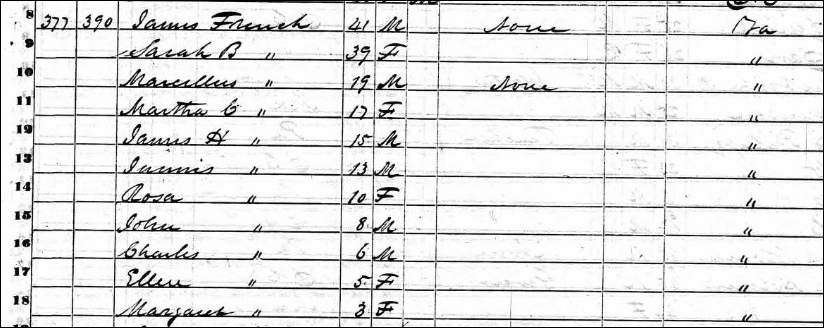 8 377 390 James French 41 M None Va
9 Sarah B " 39 F "
10 Marcellus " 19 M None "
11 Martha C " 17 F "
12 James H " 15 M "
13 " 13 M "
14 Rosa " 10 F "
15 John " 8 M "
16 Charles " 6 M "
17 Ellen " 5 F "
18 Margaret " 3 F "